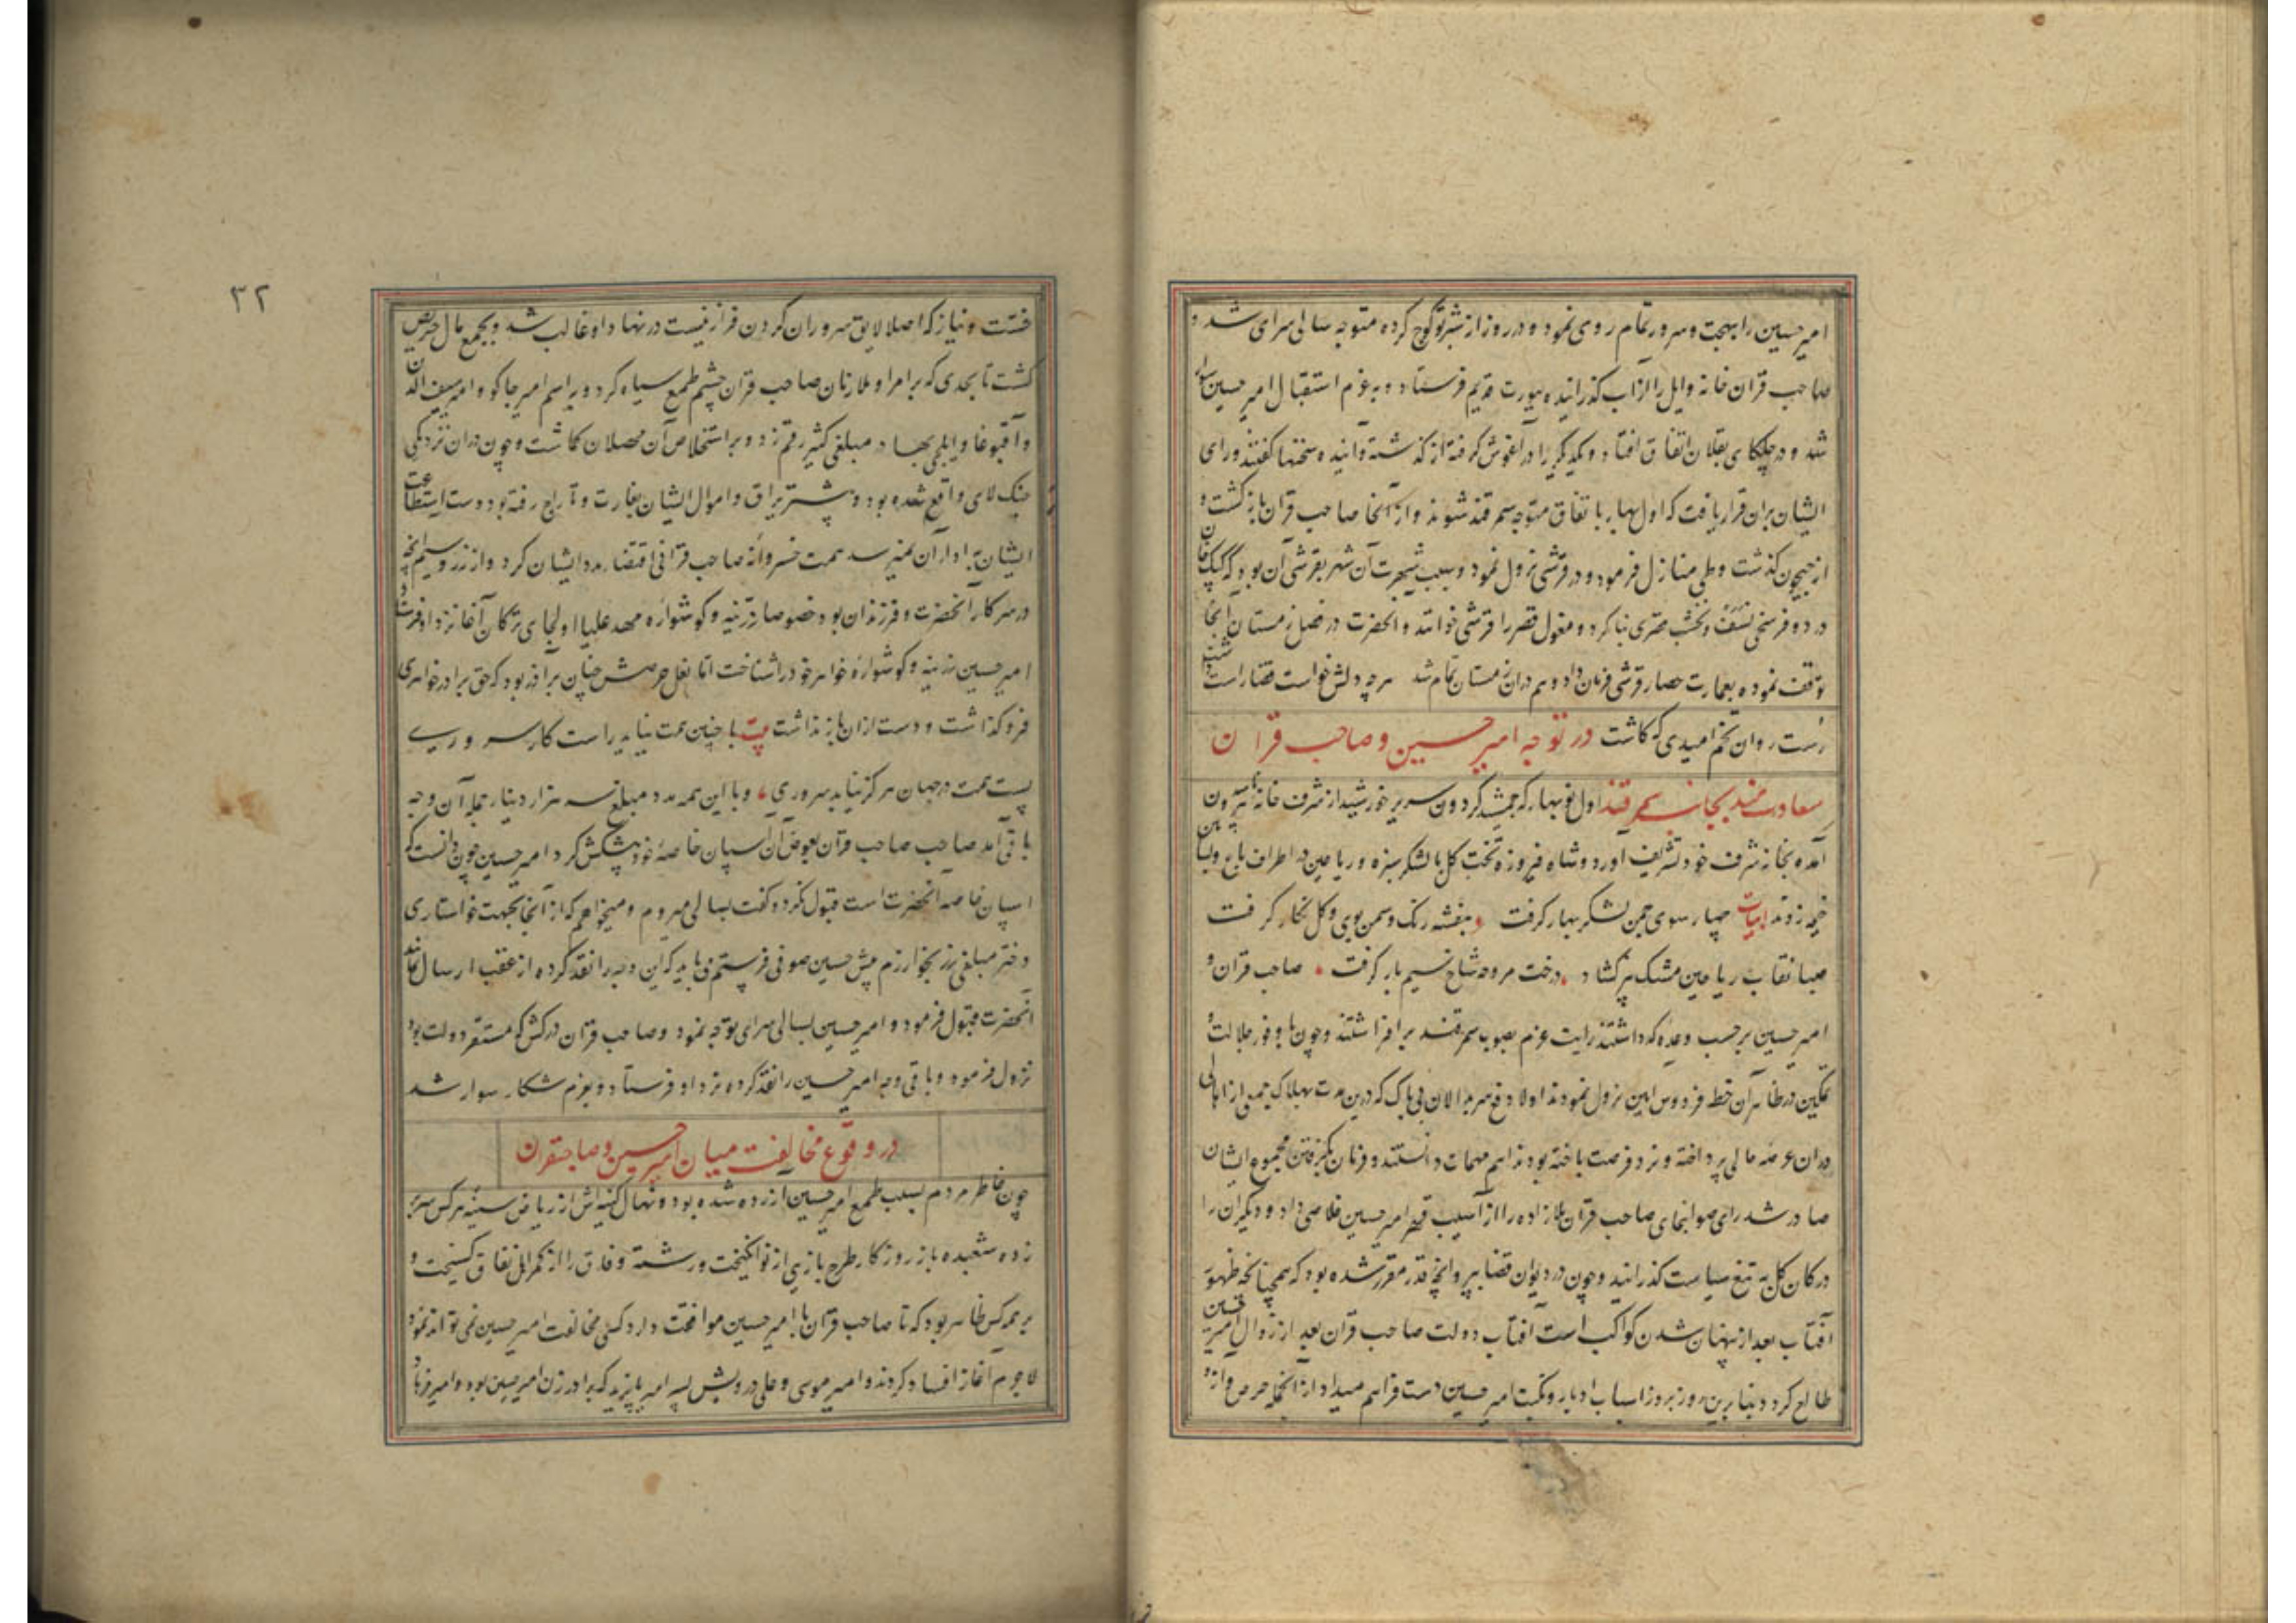 امیر حسین را بهجت و سرور تمام روی نمود و در روز از شبرتو کوچ کرده متوجه سالی سرای شد و
صاحب قران خانه وایل را از آب کذرانیده بیورت قدیم فرستاد و بعزم استقبال امیر حسین سوار
شد و در چلکای بقلان اتفاق افتاد و یکدیگر را در آغوش کرفته از کذشته و آینده سخنها کفتند و رای
ایشان بران قرار یافت که اول بهار باتفاق متوجه سمرقند شوند و از آنجا صاحب قران بازکشت و
از جیحون کذشت و طی منازل فرمود و در قرشی نزول نمود و سبب شهرت آن شهر بقرشی آن بود که کپک خان
در دو فرسخی نسف و نخشب قصری بنا کرد و مغول قصر را قرشی خوانند و آنحضرت در فصل زمستان آنجا
توقف نموده بعمارت حصار قرشی فرمان داد و هم دران زمستان تمام شد هرچه دلش خواست قضا راست
رست روان تخم امیدی که کاشت در توجه امیر حسین و صاحب قران
سعادت مند بجانب سمرقند اول نوبهار که جمشید کردون سریر خورشید از شرف خانه بیرون
آمده بخانه شرف خود تشریف آورد و شاه فیروزه تخت کل با لشکر سبزه و ریاحین در اطراف باغ و بساتین
خیمه زدند ابیات چهار سوی چمن لشکر بهار کرفت بنفشه رنک و سمن بوی و کل نکار کرفت
صبا نقاب ریاحین مشک بر کشاد درخت مروحه شاخ نسیم بار کرفت صاحب قران و
امیر حسین بر حسب وعده که داشتند رایت عزم بصوب سمرقند برافراشتند و چون با وفور جلالت و
تمکین در ظاهر آن خطه فردوس آیین نزول نمودند اولا دفع سربدالان بی باک که درین مدت بهلاک جمعی از اهالی
دران عرضه مالی پرداخته و نرد فرصت باخته بودند اهم مهمات دانستند و فرمان بکرفتن مجموع ایشان
صادر شد رای صوابنمای صاحب قران ملازاده را از آسیب قهر امیر حسین خلاصی داد و دیکران را
در کان کل به تیغ سیاست کذرانید و چون در دیوان قضا بپروانچه قدر مقرر شده بود که همچنانکه ظهور
آفتاب بعد از پنهان شدن کواکب است آفتاب دولت صاحب قران بعد از زوال امیر حسین
طالع کردد بنا برین روز بروز اسباب ادبار و نکبت امیر حسین دست فراهم میداد از آنجمله حرص و آز و
خست و نیاز که اصلا لایق سروران کردن فراز نیست در نهاد او غالب شد و بجمع مال حریص
کشت تا بحدی که بر امرا و ملازمان صاحب قران چشم طمع سیاه کرد و بر اسم امیر جاکو و امیر سیف الدین
و آقبوغا و ایلچی بهادر مبلغی کثیر رقم زد و بر استخلاص آن محصلان کماشت و چون دران نزدیکی
جنک لای واقع شده بود و بیشتر یراق و اموال ایشان بغارت و تاراج رفته بود دست استطاعت
ایشان بادای آن نمیرسید همت خسروانه صاحب قرانی اقتضا مدد ایشان کرد و از زر و سیم آنچه
در سرکار آنحضرت و فرزندان بود خصوصا زرینه و کوشواره مهد علیا اولجای ترکان آغا نزد او فرستاد
امیر حسین زرینه و کوشواره خواهر خود را شناخت اما نعل حرصش چنان بر آذر بود که حق برادر خواهری
فروکذاشت و دست ازان بازنداشت بیت با چنین همت نیاید راست کار سروری
پست همت در جهان هرکز نیابد سروری و با این همه مدد مبلغ سه هزار دینار جمله آن وجه
باقی آمد صاحب صاحب قران بعوض آن اسپان خاصه خود پیشکش کرد امیر حسین چون دانست که
اسپان خاصه آنحضرت است قبول نکرد و کفت بسالی میروم و میخواهم که از آنجا بجهت خواستاری
دختر مبلغی زر بخوارزم پیش حسین صوفی فرستم می باید که این وجه را نقد کرده از عقب ارسال نمایند
آنحضرت قبول فرمود و امیر حسین بسالی سرای توجه نمود و صاحب قران در کش که مستقر دولت بود
نزول فرمود و باقی وجه امیر حسین را نقد کرده نزد او فرستاد و بعزم شکار سوار شد
در وقوع مخالفت میان امیر حسین و صاحبقران
چون خاطر مردم بسبب طمع امیر حسین آزرده شده بود و نهال کینه اش از ریاض سینه هر کس سر بر
زده شعبده باز روزکار طرح بازیی از نو انکیخت و رشته وفاق را از کمر اهل نفاق کسیخت و
بر همه کس ظاهر بود که تا صاحب قران با امیر حسین موافقت دارد کسی مخالفت امیر حسین نمی تواند نمود
لاجرم آغاز افساد کردند و امیر موسی و علی درویش پسر امیر بایزید که برادر زن امیر حسین بود و امیر فرهاد
۳۲